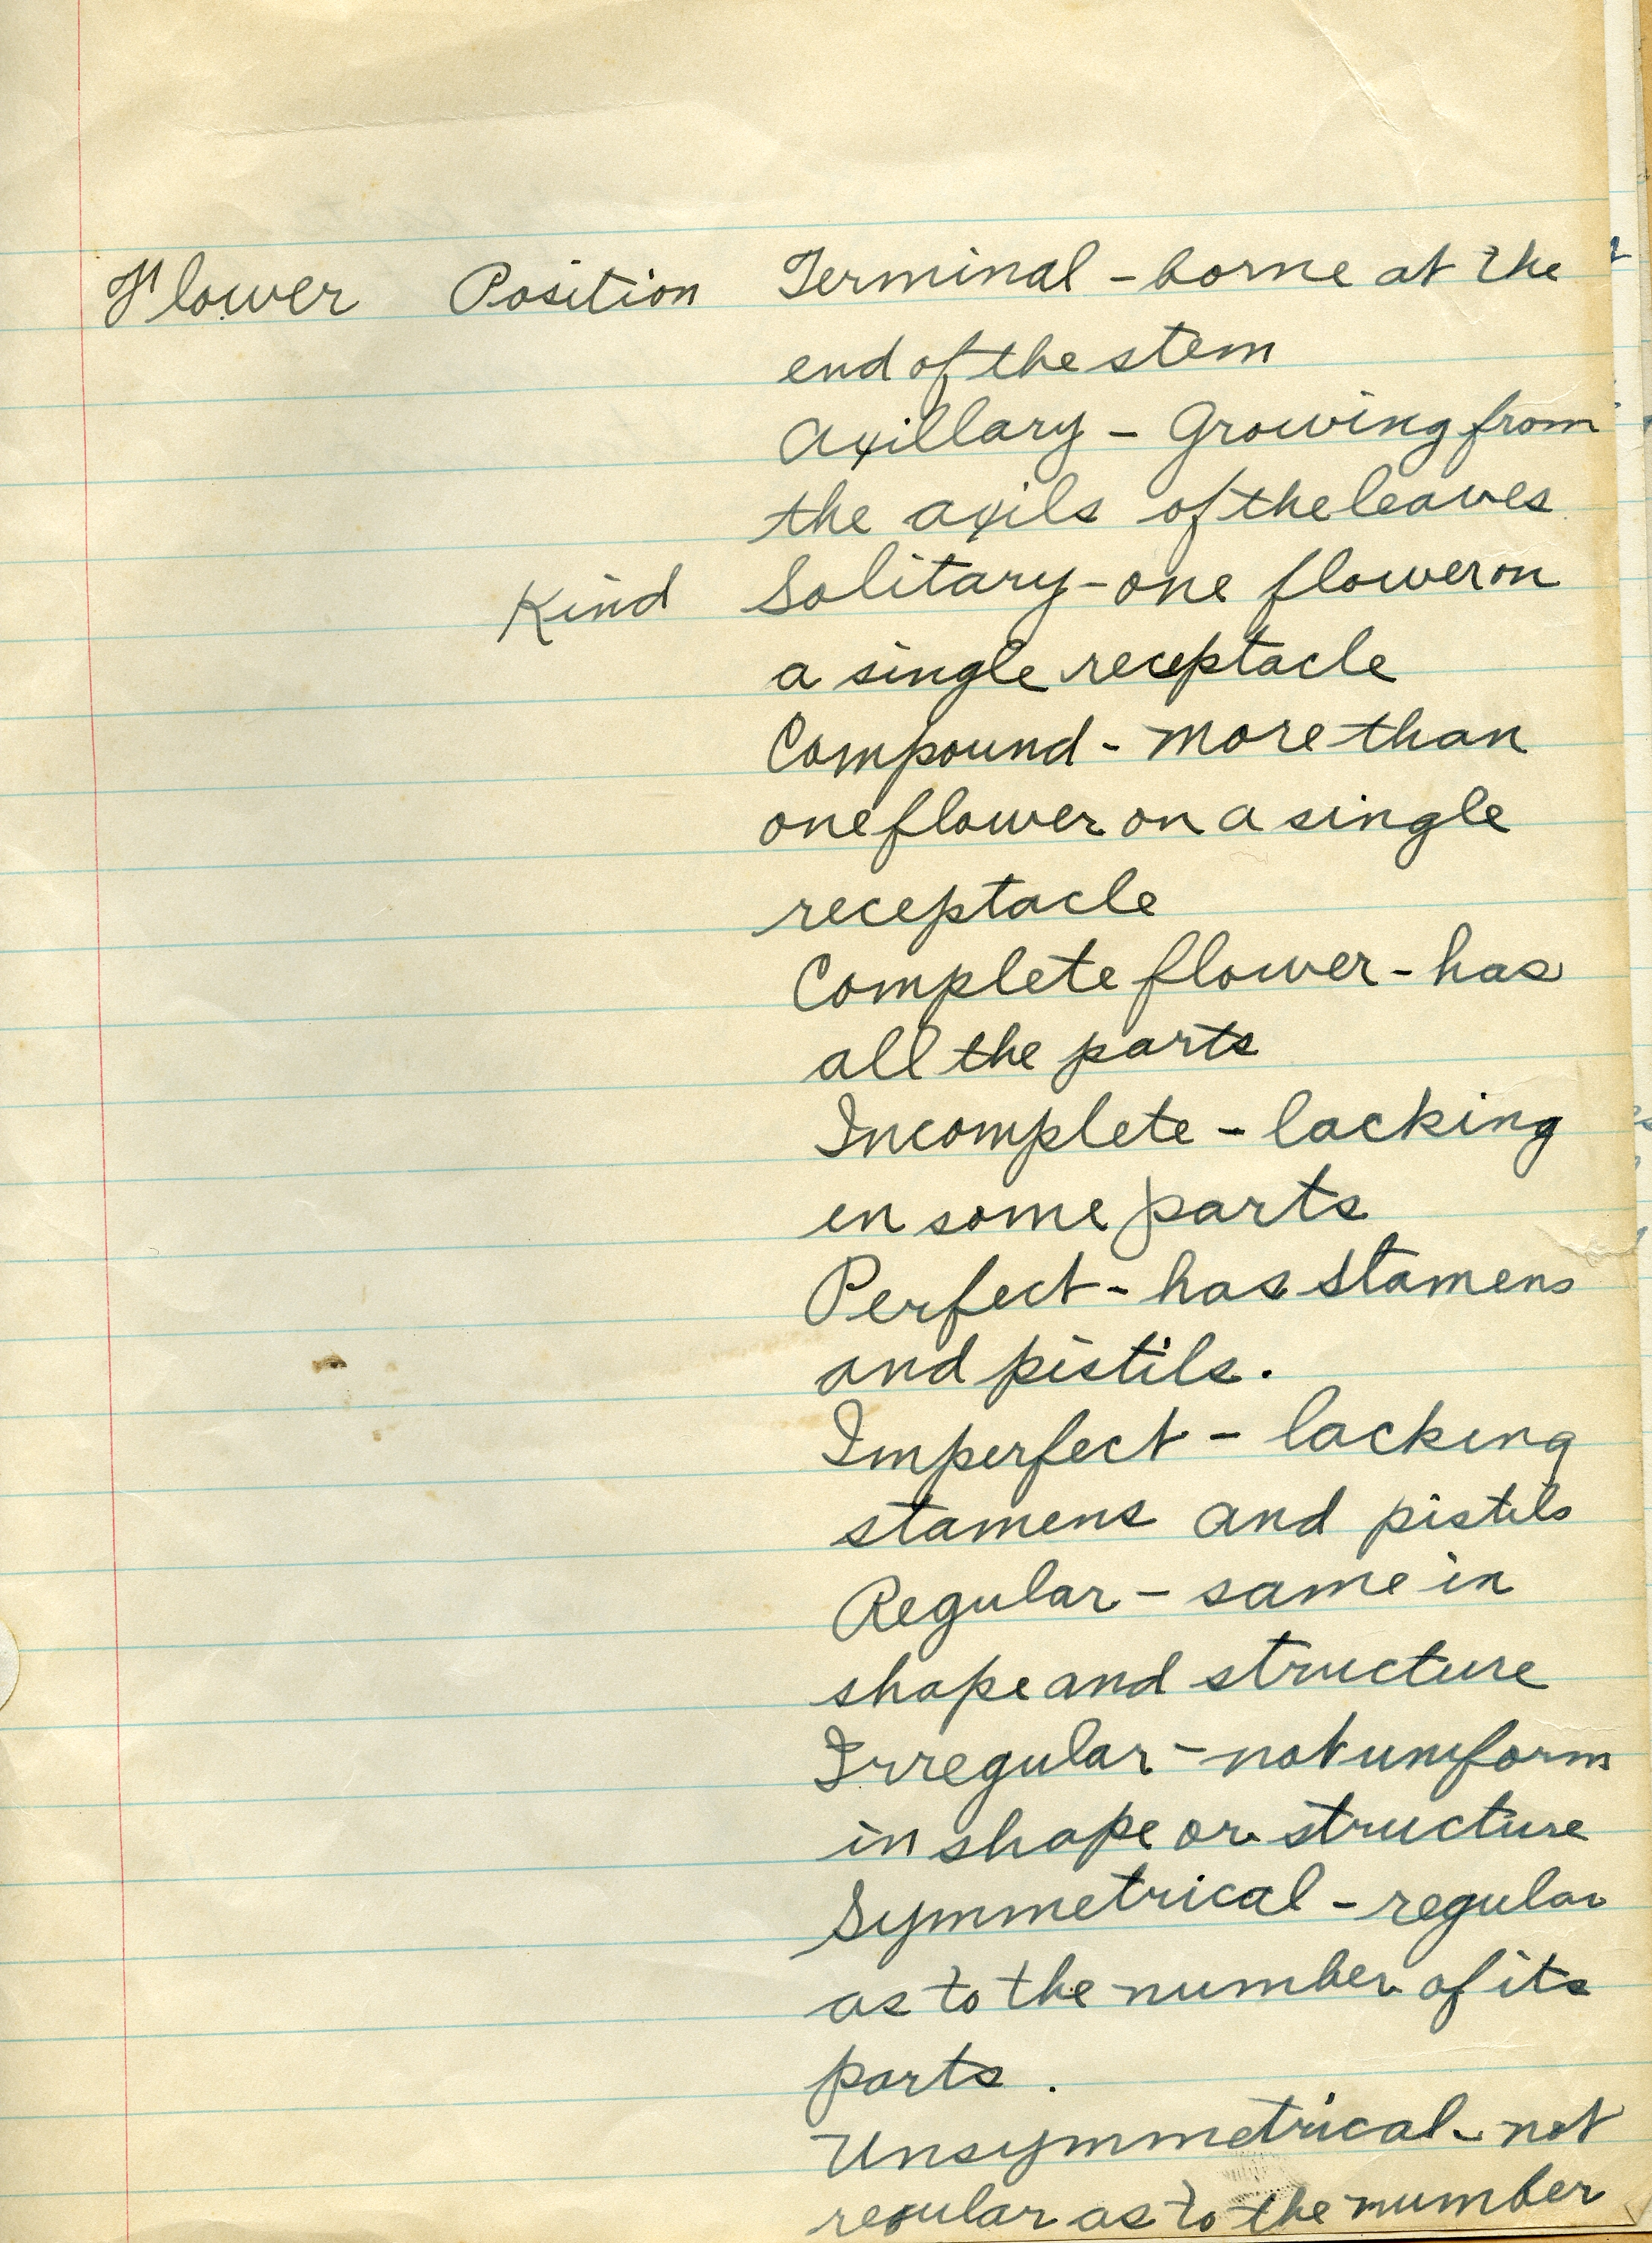 Flower Position Terminal - borne at the
end of the stem
Axillary - Growing from
the axils of the leaves
Kind Solitary - one flower on
a single receptacle
Compound - more than
one flower on a single
receptacle
Complete flower - has
all the parts
Incomplete - lacking
in some parts
Perfect - has stamens
and pistils.
Imperfect - lacking
stamens and pistils
Regular - same in
shape and structure
Irregular - not uniform
in shape or structure
Symmetrical - regular
as to the number of its
parts.
Unsymmetrical - not
regular as to the number